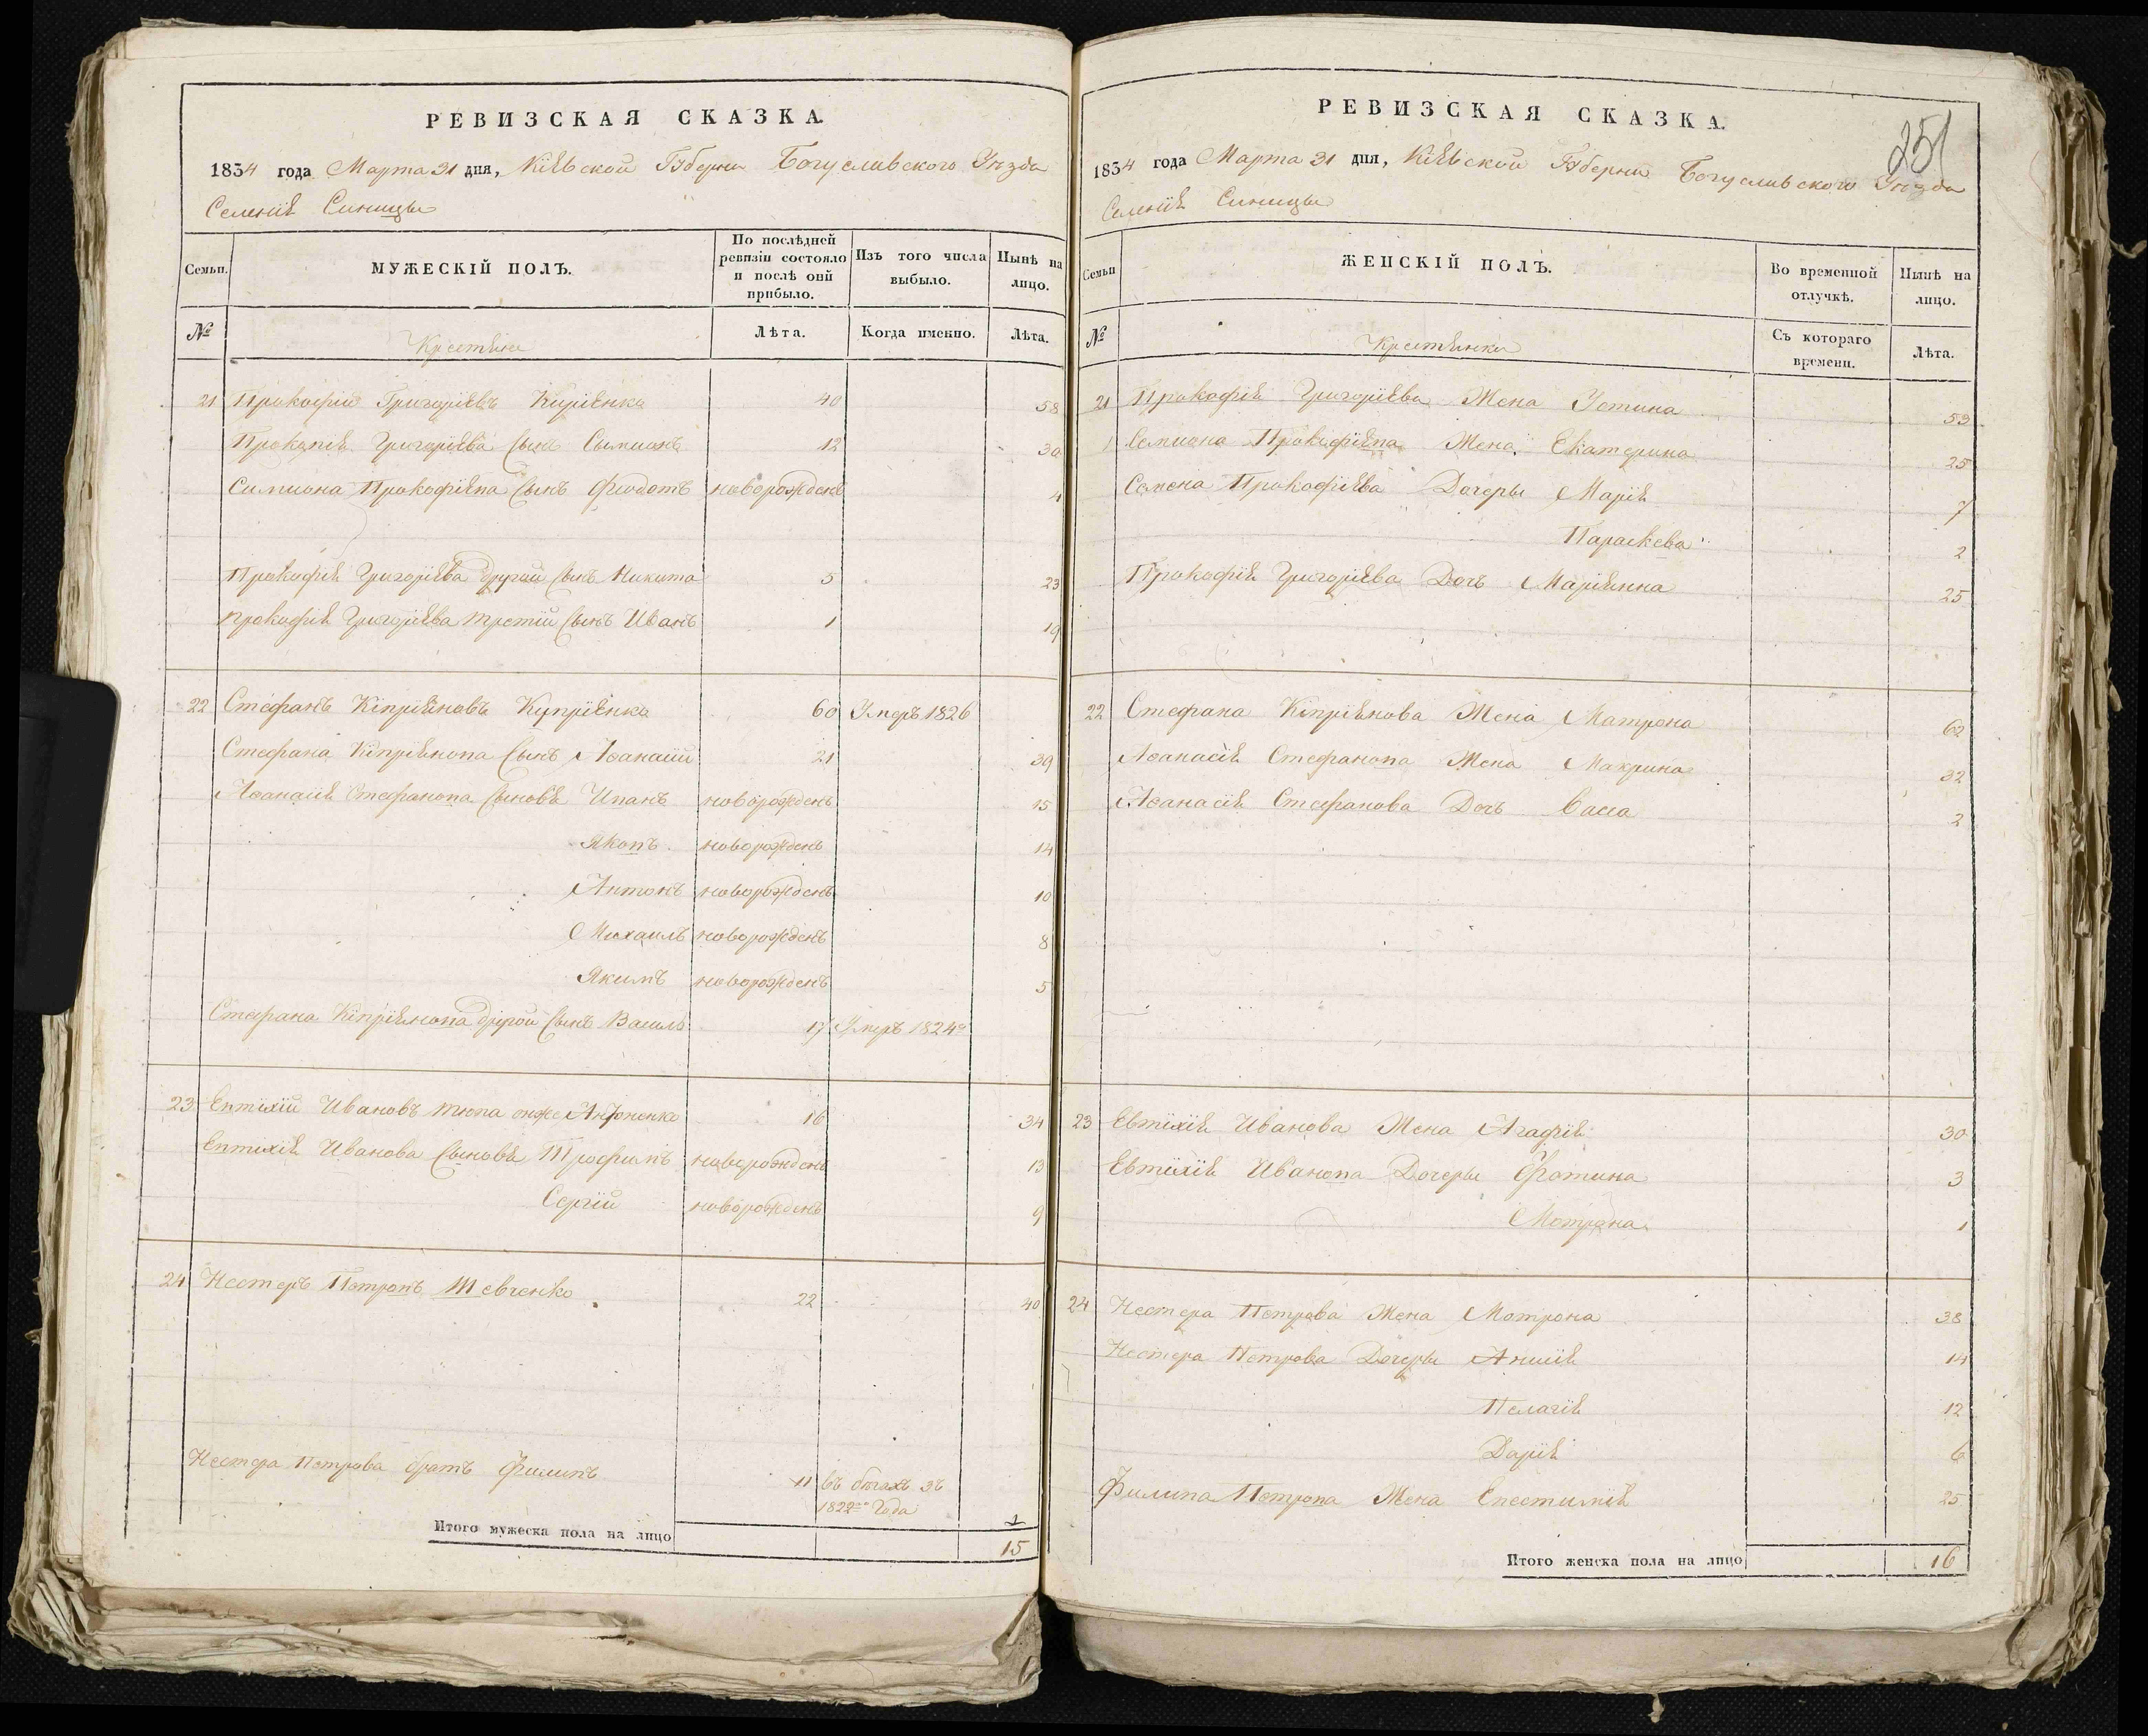 РЕВИЗСКАЯ СКАЗКА.
1834 года Марта 31 дня, Кіевской Губерніи Богуславского Уѣзда
Селенія Синицы
Семьи.
МУЖЕСКІЙ ПОЛЪ.
По послѣдней ревизіи состояло и послѣ оній прибыло.
Изъ того числа выбыло.
Нынѣ на лицо.
№
Крестяне
Лѣта.
Когда именно.
Лѣта.
21 Прокофій Григоріевъ Киріенко 40 58
Григоріева Сынъ Симионъ 12 30
Симиона Прокофіева Сынъ Феодотъ новорожденъ 4
Прокофія Григоріева другой Сынъ Никита 5 23
Прокофія Григоріева третій Сынъ Иванъ 1 19
22 Стефанъ Кіпріяновъ Купріенко 60 Умеръ 1826
Стефана Кіпріянова Сынъ Аѳанасій 21 39
Аѳанасія Стефанова Сыновья Иванъ новорожденъ 15
Яковъ новорожденъ 14
Антонъ новорожденъ 10
Михаилъ новорожденъ 8
Якимъ новорожденъ 5
Стефана Кіпріянова другой Сынъ Василь 17 Умеръ 1824го
23 Евтихій Ивановъ онже 16 34
Евтихія Иванова Сыновья Трофимъ новорожденъ 13
Сергій новорожденъ 9
24 Нестеръ Петровъ Шевченко 22 40
Нестера Петрова братъ Филипъ 11 въ бѣгахъ зъ
1822го года
Итого мужеска пола на лицо 15
РЕВИЗСКАЯ СКАЗКА.
251
1834 года Марта 31 дня, Кіевской Губерніи Богуславского Уѣзда
Селенія Синицы
Семьи
ЖЕНСКІЙ ПОЛЪ.
Во временной отлучкѣ.
Нынѣ на лицо.
№
Крестянки
Съ котораго времени.
Лѣта.
21 Прокофія Григоріева Жена Устина 53
Семиона Прокофіева Жена Екатерина 25
Семена Прокофіева Дочеры Марія 7
Параскева 2
Прокофія Григоріева Дочь Маріянна 25
22 Стефана Кіпріянова Жена Матрона 62
Аѳанасія Стефанова Жена Макрина 32
Аѳанасія Стефанова Дочь Васса 2
23 Евтихія Иванова Жена Агафія 30
Евтихія Иванова Дочеры Фотина 3
Мотрона 1
24 Нестера Петрова Жена Мотрона 38
Нестера Петрова Дочеры Анисія 14
Пелагія 12
Дарія 6
Филипа Петрова Жена 25
Итого женска пола на лицо 16